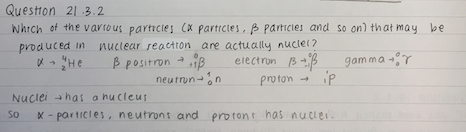 Question 21.3.2
Which of the various particles (α particles, β particles and so on) that may be
produced in nuclear reaction are actually nuclei?
α → ⁴₂He β positron → ⁰₊₁β electron β → ⁰₋₁β gamma → ⁰₀γ
neutron → ¹₀n proton → ¹₁p
Nuclei → has a nucleus
so α-particles, neutrons and protons has nuclei.